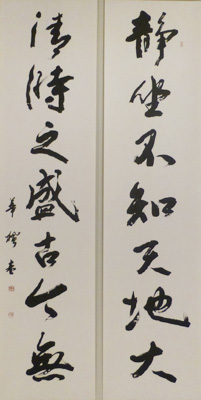 静坐不知天地大
清時之盛古今無